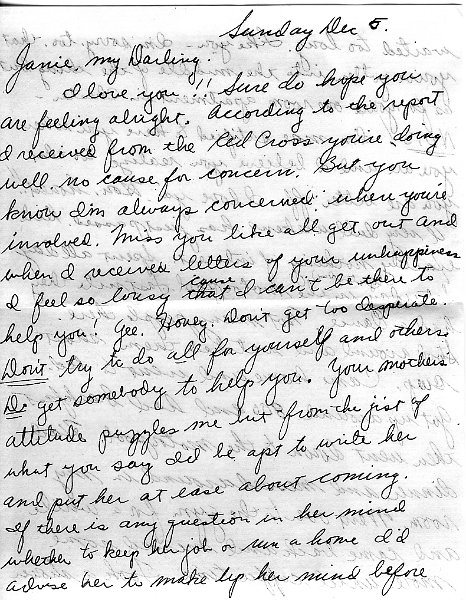 Sunday Dec 5.
Janie my Darling.
I love you!! Sure do hope you
are feeling alright. According to the report
I received from the Red Cross you're doing
well. no cause for concern. But you
know I'm always concerned when you're
involved. Miss you like all get out and
when I received letters of your unhappiness
I feel so lousy cause that I can't be there to
help you! Gee. Honey. Don't get too desperate.
Don't try to do all for yourself and others.
Do get somebody to help you. Your mothers
attitude puzzles me but from the jist of
what you say I'd be apt to write her
and put her at ease about coming.
If there is any question in her mind
whether to keep her job or run a home I'd
advise her to make up her mind before